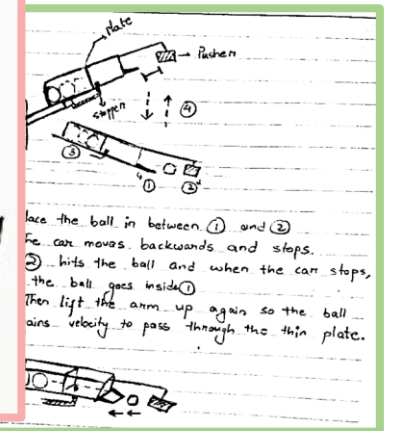 Plate
→ Pusher
stopper
④
③
①
②
lace the ball in between ① and ②
he car moves backwards and stops.
② hits the ball and when the car stops,
the ball goes inside ①
Then lift the arm up again so the ball
ains velocity to pass through the thin plate.